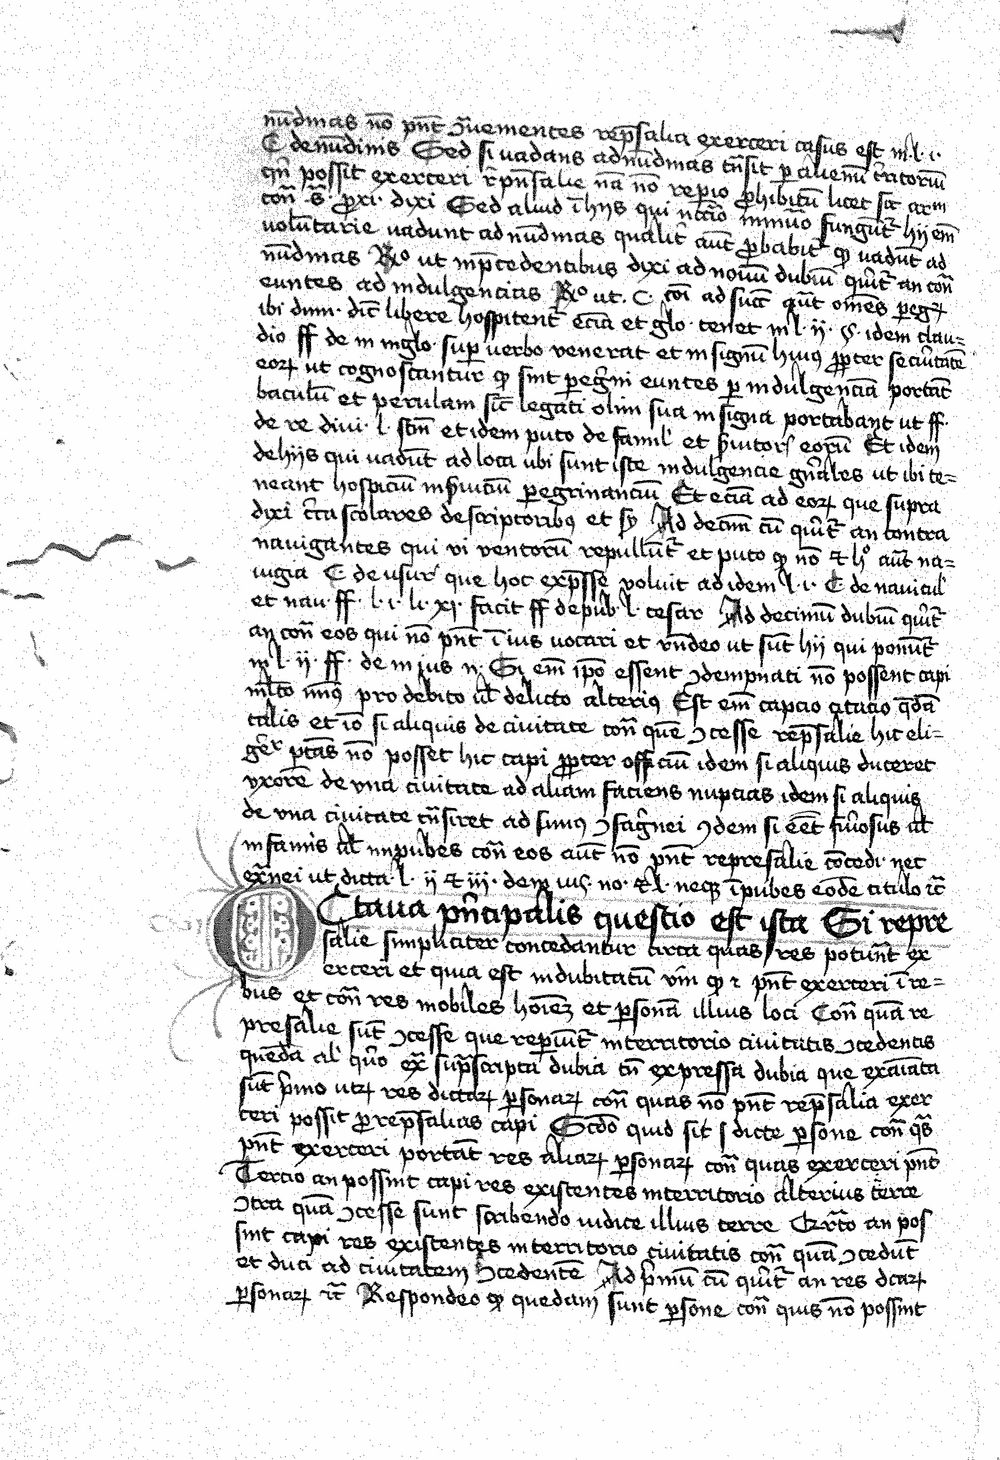 nūdinas nō pn̄t ꝯuementes rep̄salia exerceri casus est in l. i.
C de nūdinis Sed si uadans ad nūdinas tn̄sit p alienū t̄ritoriū
qn̄ possit exerceri rp̄nsalie nā nō reperio ꝓhibitū licet sit
con̄ s. ꝓxi. dixi Sed aliud ī hijs qui funguntr̄ hij em̄
voluntarie uadunt ad nūdinas qualit̄ aut̄ ꝓbabit̄ ꝙ uadūt ad
nūdinas Rº ut in p̄cedentibus dixi ad nonū dubiū qr̄it̄ an con̄
euntes ad indulgencias Rº ut C coī ad succ̄ om̄es pegꝝ
ibi dum. dic̄ libere hospitent̄ eciā et glo. tenet in l. ii. §. idem clau=
dio ff de in in glo. sup uerbo venerat et in signū huiꝰ ꝓpter secu̇ritatē
eoꝝ ut cognoscantur ꝙ sint peg̊ni euntes p indulgenciā portāt
baculū et perulam sic̄ legati olim sua insigna portabant ut ff.
de re diui. l. scm̄ et idem puto de famil' et s̄uitorꝭ eorū Et idem
de hijs qui uadūt ad loca ubi sunt iste indulgencie gn̄ales ut ibi te=
neant hospiciū in s̄uiciū peregrinanciū Et eciā ad eoꝝ que supra
dixi c̄ca scolares descriptoribꝰ et sy Ad decim̄ cū qr̄it̄ an contra
nauigantes qui vi ventorū repullūt̄ et puto ꝙ nō aut̄ na=
uigia C de usur' que hoc exp̄sse voluit ad idem l. i. C de nauicul'
et nau. ff. l. i. li. xi. facit ff de pub. l. cesar Ad decimū dubiū qr̄it̄
an con̄ eos qui nō pn̄t ī ius uocari et rn̄deo ut sūt hij qui ponūt̄
in l. ii. ff. de in ius u. Si em̄ ip̄o essent ꝯdempnati nō possent capi
ml̄to minꝰ pro debito ul̄ delicto alteriꝰ Est em̄ capcio citacio qd̄ā
talis et iō si aliquis de ciuitate con̄ quē ꝯcesse rep̄salie hic eli=
ger ptās nō posset hic capi ꝓpter officiū idem si aliquis duceret
vxorē de vna ciuitate ad aliam faciens nupcias idem si aliquis
de vna ciuitate tn̄siret ad funꝰ ꝯsag̊nei ꝯdem si eēt furiosus ul̄
infamis ul̄ inpubes con̄ eos aut̄ nō pn̄t represalie cōcedi. nec
ex̄nei ut dicta l. ii et iii. de in ius. no. et l. necꝫ īpubes eodē titulo ic̄
Octaua pn̄cipalis questio est ista Si repre
salie simpliciter concedantur circa quas res potūn̄t ex
erceri et quia est indubitatū ꝙ pn̄t exerceri ī re=
bus et con̄ res mobiles hoīeꝫ et psonā illius loci Con̄ quā re
presalie sūt ꝯcesse que repiūt̄ in territorio ciuitatis ꝯcedentis
quedā al' qr̄o ex sup̄scripta dubia tn̄ expressa dubia que exaīata
sūt p̄mo utꝝ res dictaꝝ psonaꝝ con̄ quas nō pn̄t rep̄salia exer
ceri possit ꝓ rep̄salias capi Scdō quid sit s dicte psone con̄ qs̄
pn̄t exerceri portāt res aliaꝝ psonaꝝ con̄ quas exerceri pn̄t
Tercio an possint capi res existentes in territorio alterius terre
ꝯtra quā ꝯcesse sunt scribendo iudice illius terre Qr̄to an pos
sint capi res existentes in territorio ciuitatis con̄ quā ꝯcedūt
et duci ad ciuitatem ꝯcedentē Ad p̄mū cū qr̄it̄ an res dcaꝝ
psonaꝝ ic̄ Respondeo ꝙ quedam sunt psone con̄ quis nō possint